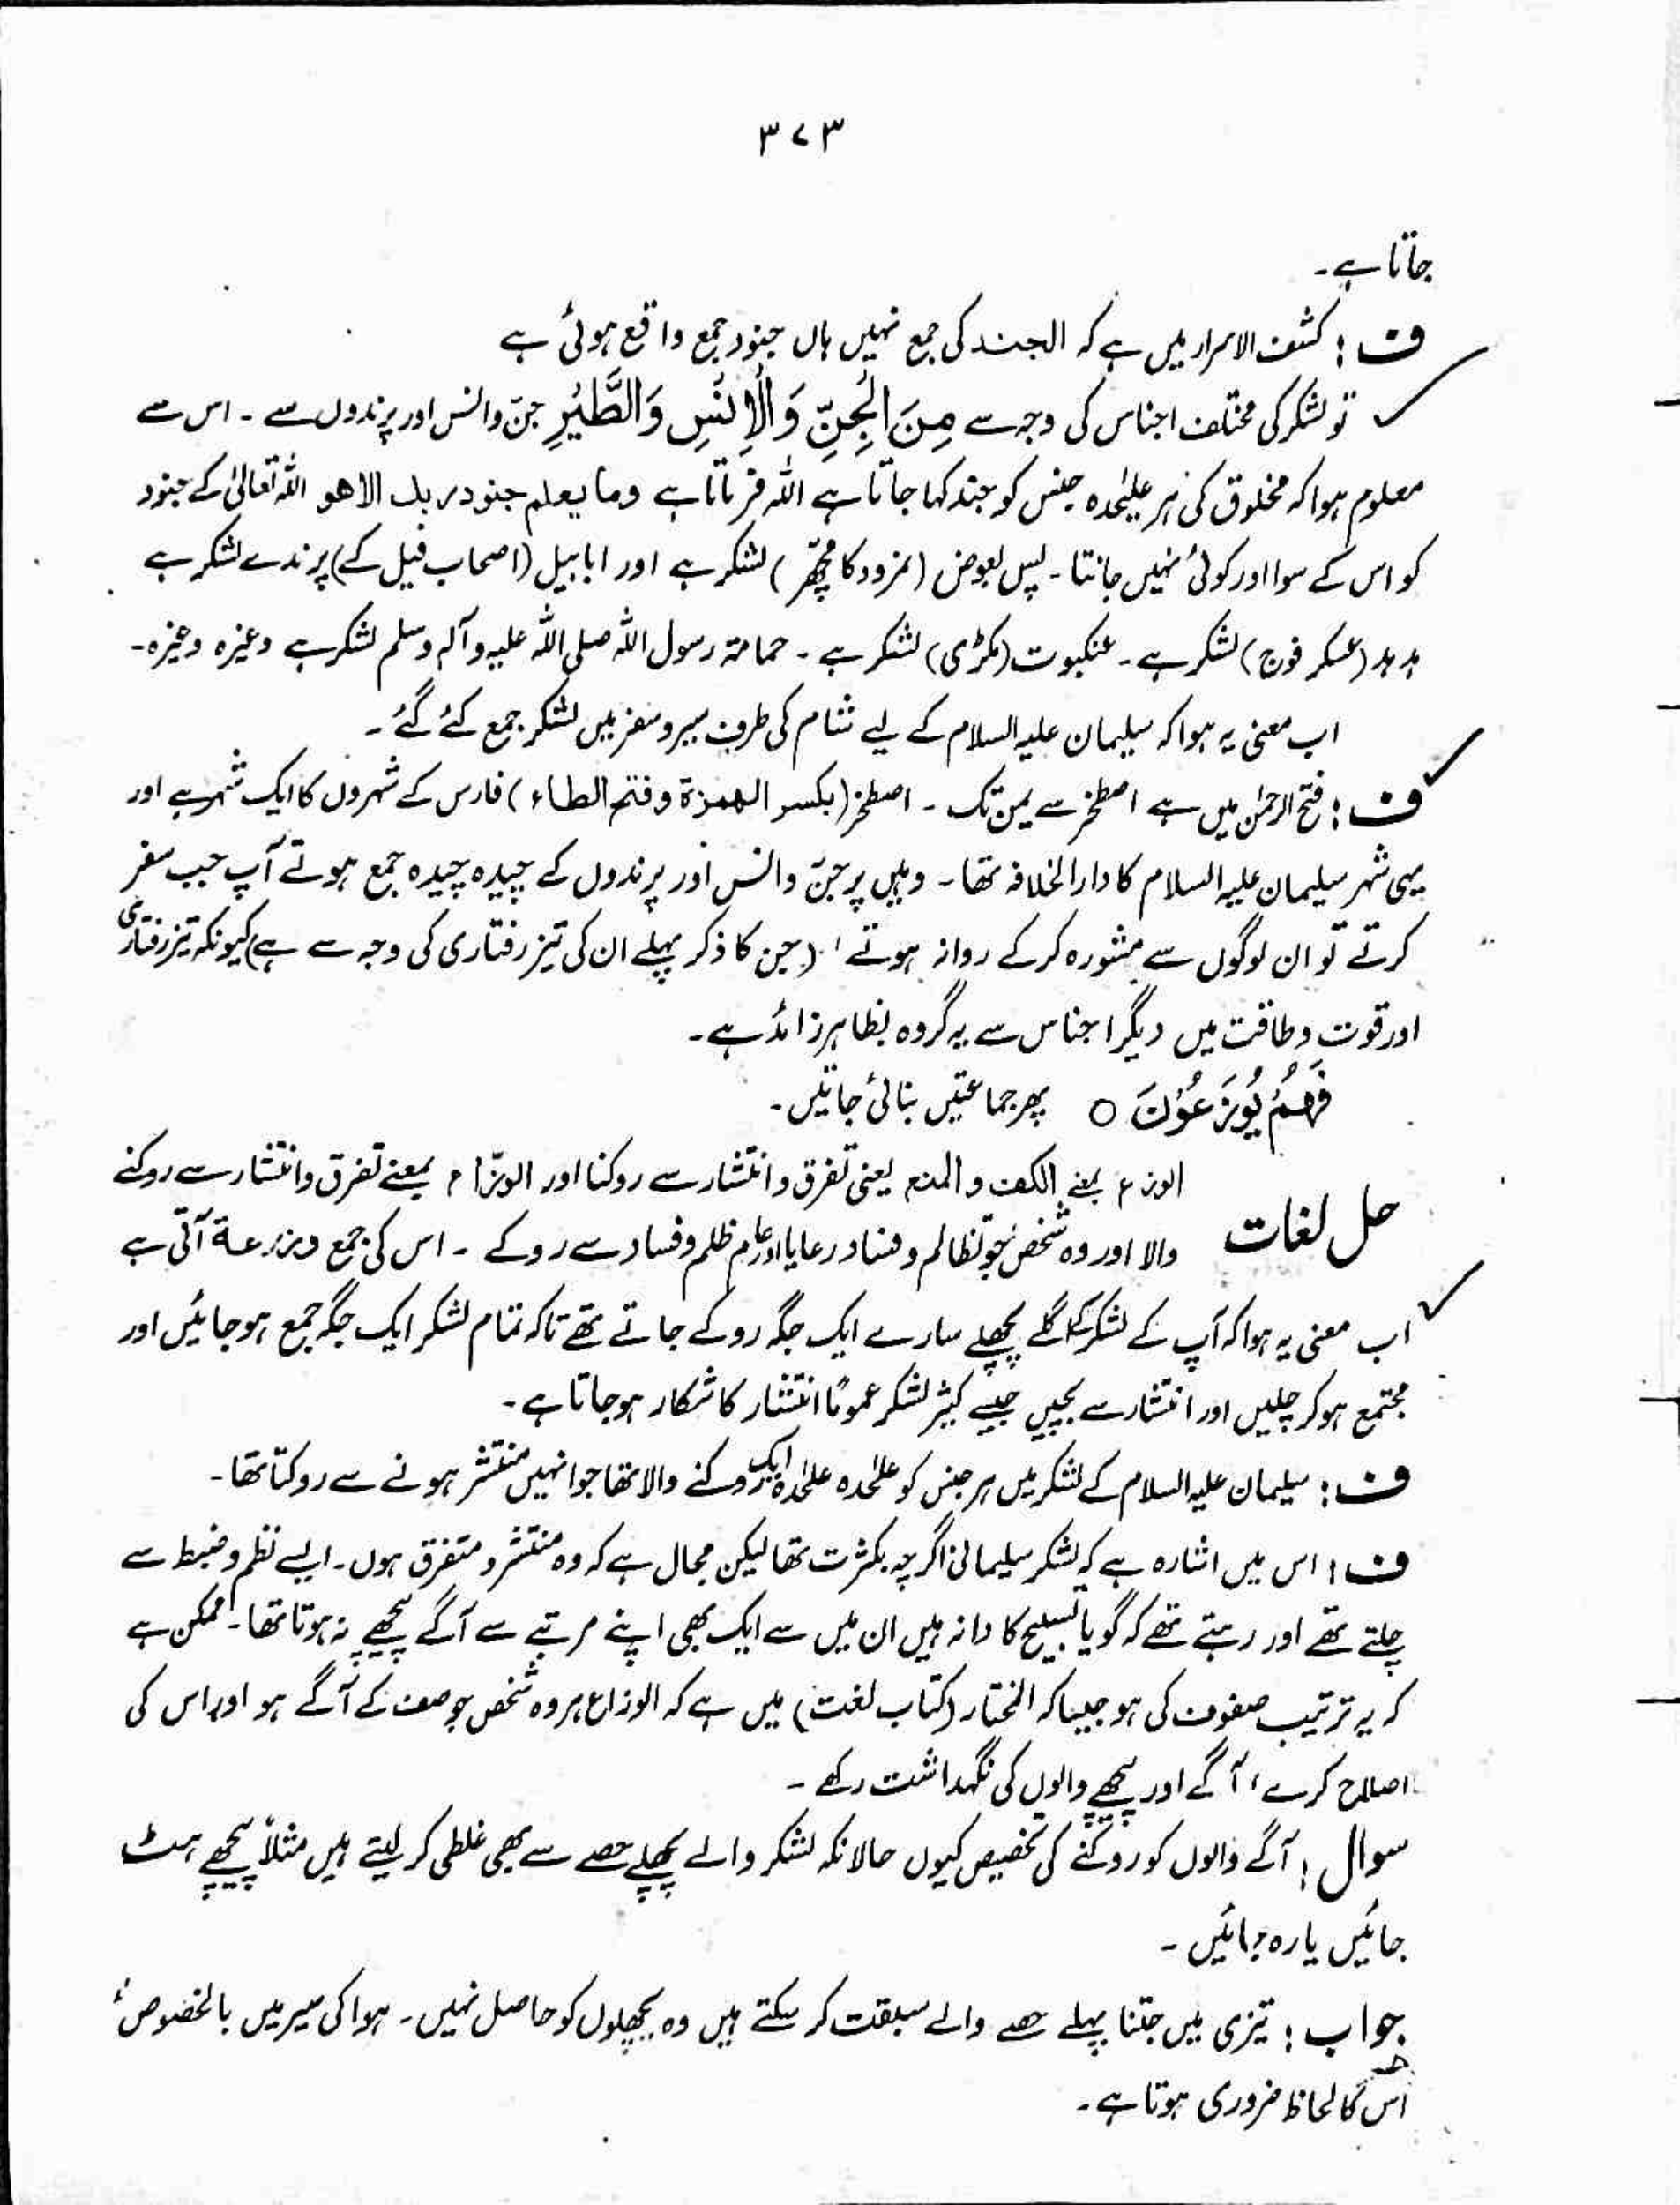 ۳۷۳
جاتا ہے۔
ف: کشف الاسرار میں ہے کہ الجند کی جمع نہیں ہاں جنود جمع واقع ہوئی ہے
تو لشکر کی مختلف اجناس کی وجہ سے مِنَ الْجِنِّ وَالْاِنْسِ وَالطَّیْرِ جن و انس اور پرندوں سے ۔ اس سے
معلوم ہوا کہ مخلوق کی ہر علیحدہ جنس کو جند کہا جاتا ہے اللہ فرماتا ہے وما یعلم جنود ربک الا ھو اللہ تعالیٰ کے جنود
کو اس کے سوا اور کوئی نہیں جانتا ۔ پس بعوض (نمرود کا مچھر) لشکر ہے اور ابابیل (اصحاب فیل کے) پرندے لشکر ہے
ہدہد (عسکر فوج) لشکر ہے ۔ عنکبوت (مکڑی) لشکر ہے ۔ حمامۃ رسول اللہ صلی اللہ علیہ وآلہ وسلم لشکر ہے وغیرہ وغیرہ۔
اب معنی یہ ہوا کہ سلیمان علیہ السلام کے لیے شام کی طرف سیر و سفر میں لشکر جمع کئے گئے ۔
ف: فتح الرحمٰن میں ہے اصطخر سے یمن تک ۔ اصطخر (بکسر الھمزۃ و فتح الطاء) فارس کے شہروں کا ایک شہر ہے اور
یہی شہر سلیمان علیہ السلام کا دارالخلافہ تھا ۔ وہیں پر جن و انس اور پرندوں کے چیدہ چیدہ جمع ہوتے آپ جب سفر
کرتے تو ان لوگوں سے مشورہ کر کے روانہ ہوتے (جن کا ذکر پہلے ان کی تیز رفتاری کی وجہ سے ہے) کیونکہ تیز رفتاری
اور قوت و طاقت میں دیگر اجناس سے یہ گروہ بظاہر زائد ہے۔
فَھُمْ یُوْزَعُوْنَ ○ پھر جماعتیں بنائی جاتیں۔
حل لغات الوزع بمعنے الکف والمنع یعنی تفرق و انتشار سے روکنا اور الوزّاع بمعنے تفرق و انتشار سے روکنے
والا اور وہ شخص جو تظالم و فساد رعایا اور عام ظلم و فساد سے روکے ۔ اس کی جمع وزرعۃ آتی ہے
اب معنی یہ ہوا کہ آپ کے لشکر کے اگلے پچھلے سارے ایک جگہ روکے جاتے تھے تاکہ تمام لشکر ایک جگہ جمع ہو جائیں اور
مجتمع ہو کر چلیں اور انتشار سے بچیں جیسے کثیر لشکر عموماً انتشار کا شکار ہو جاتا ہے۔
ف: سلیمان علیہ السلام کے لشکر میں ہر جنس کو علٰحدہ علٰحدہ ایک روکنے والا تھا جو انہیں منتشر ہونے سے روکتا تھا۔
ف: اس میں اشارہ ہے کہ لشکر سلیمانی اگرچہ بکثرت تھا لیکن مجال ہے کہ وہ منتشر و متفرق ہوں۔ ایسے نظم و ضبط سے
چلتے تھے اور رہتے تھے کہ گویا تسبیح کا دانہ ہیں ان میں سے ایک بھی اپنے مرتبے سے آگے پیچھے نہ ہوتا تھا ۔ ممکن ہے
کہ یہ ترتیب صفوف کی ہو جیسا کہ المختار (کتاب لغت) میں ہے کہ الوزاع ہر وہ شخص جو صف کے آگے ہو اور اس کی
اصلاح کرے، آگے اور پیچھے والوں کی نگہداشت رکھے ۔
سوال: آگے والوں کو روکنے کی تخصیص کیوں حالانکہ لشکر والے پچھلے حصے سے بھی غلطی کر لیتے ہیں مثلاً پیچھے ہٹ
جائیں یا رہ جائیں ۔
جواب: تیزی میں جتنا پہلے حصے والے سبقت کر سکتے ہیں وہ پچھلوں کو حاصل نہیں۔ ہوا کی سیر میں بالخصوص
اس کا لحاظ ضروری ہوتا ہے۔